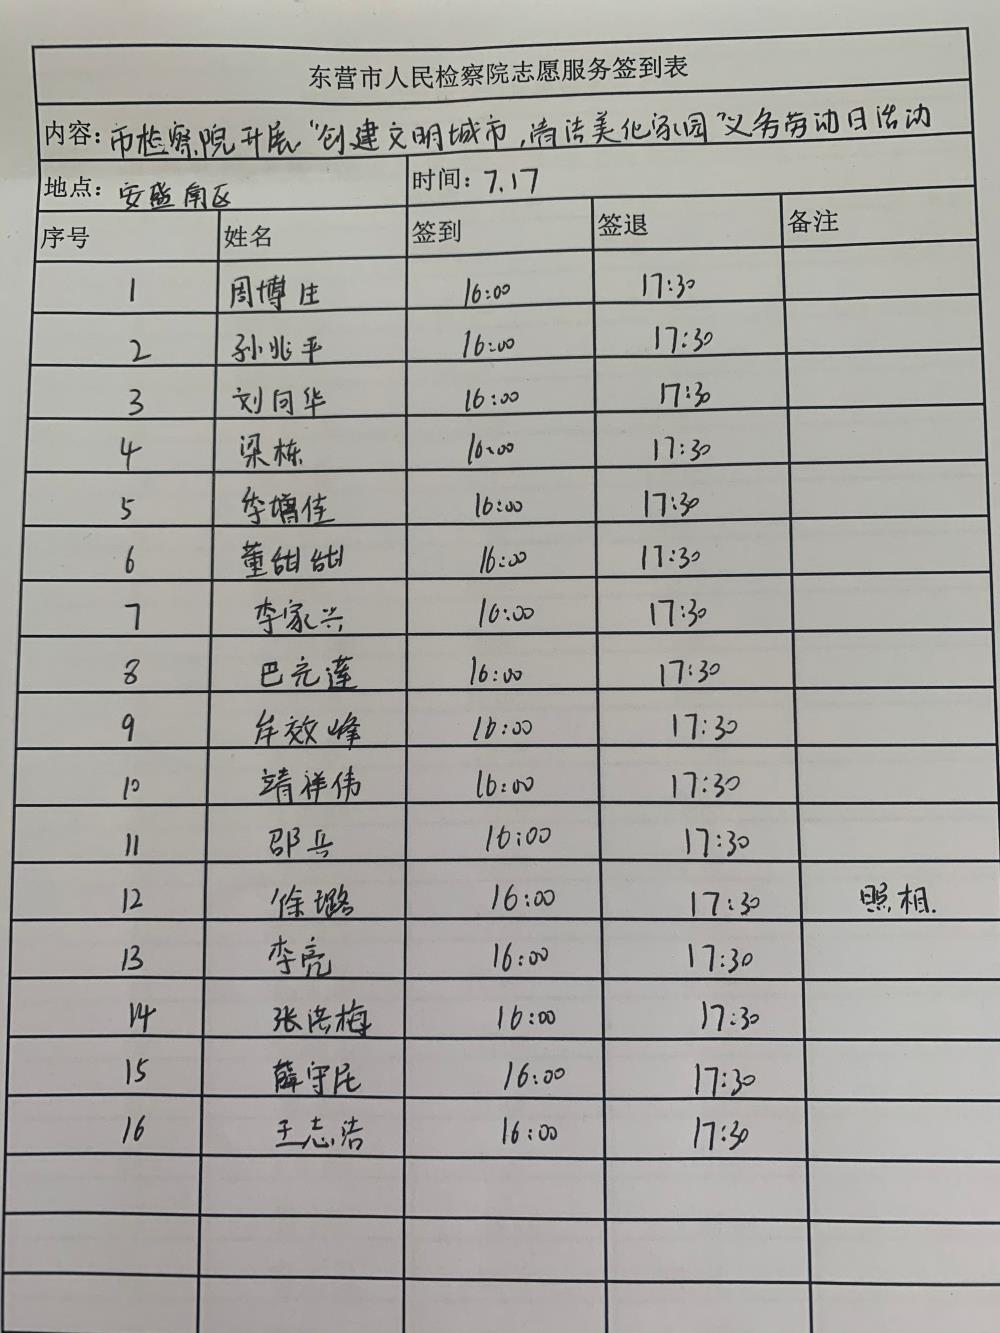 东营市人民检察院志愿服务签到表
内容：市检察院开展“创建文明城市，清洁美化家园”义务劳动日活动
地点：安盛南区 时间：7.17
序号 姓名 签到 签退 备注
1 周博庄 16:00 17:30
2 孙兆平 16:00 17:30
3 刘向华 16:00 17:30
4 梁栋 16:00 17:30
5 李增佳 16:00 17:30
6 董甜甜 16:00 17:30
7 李家兴 16:00 17:30
8 巴元莲 16:00 17:30
9 牟效峰 16:00 17:30
10 靖祥伟 16:00 17:30
11 邵兵 16:00 17:30
12 徐璐 16:00 17:30 照相.
13 李亮 16:00 17:30
14 张洪梅 16:00 17:30
15 薛守民 16:00 17:30
16 王志洁 16:00 17:30